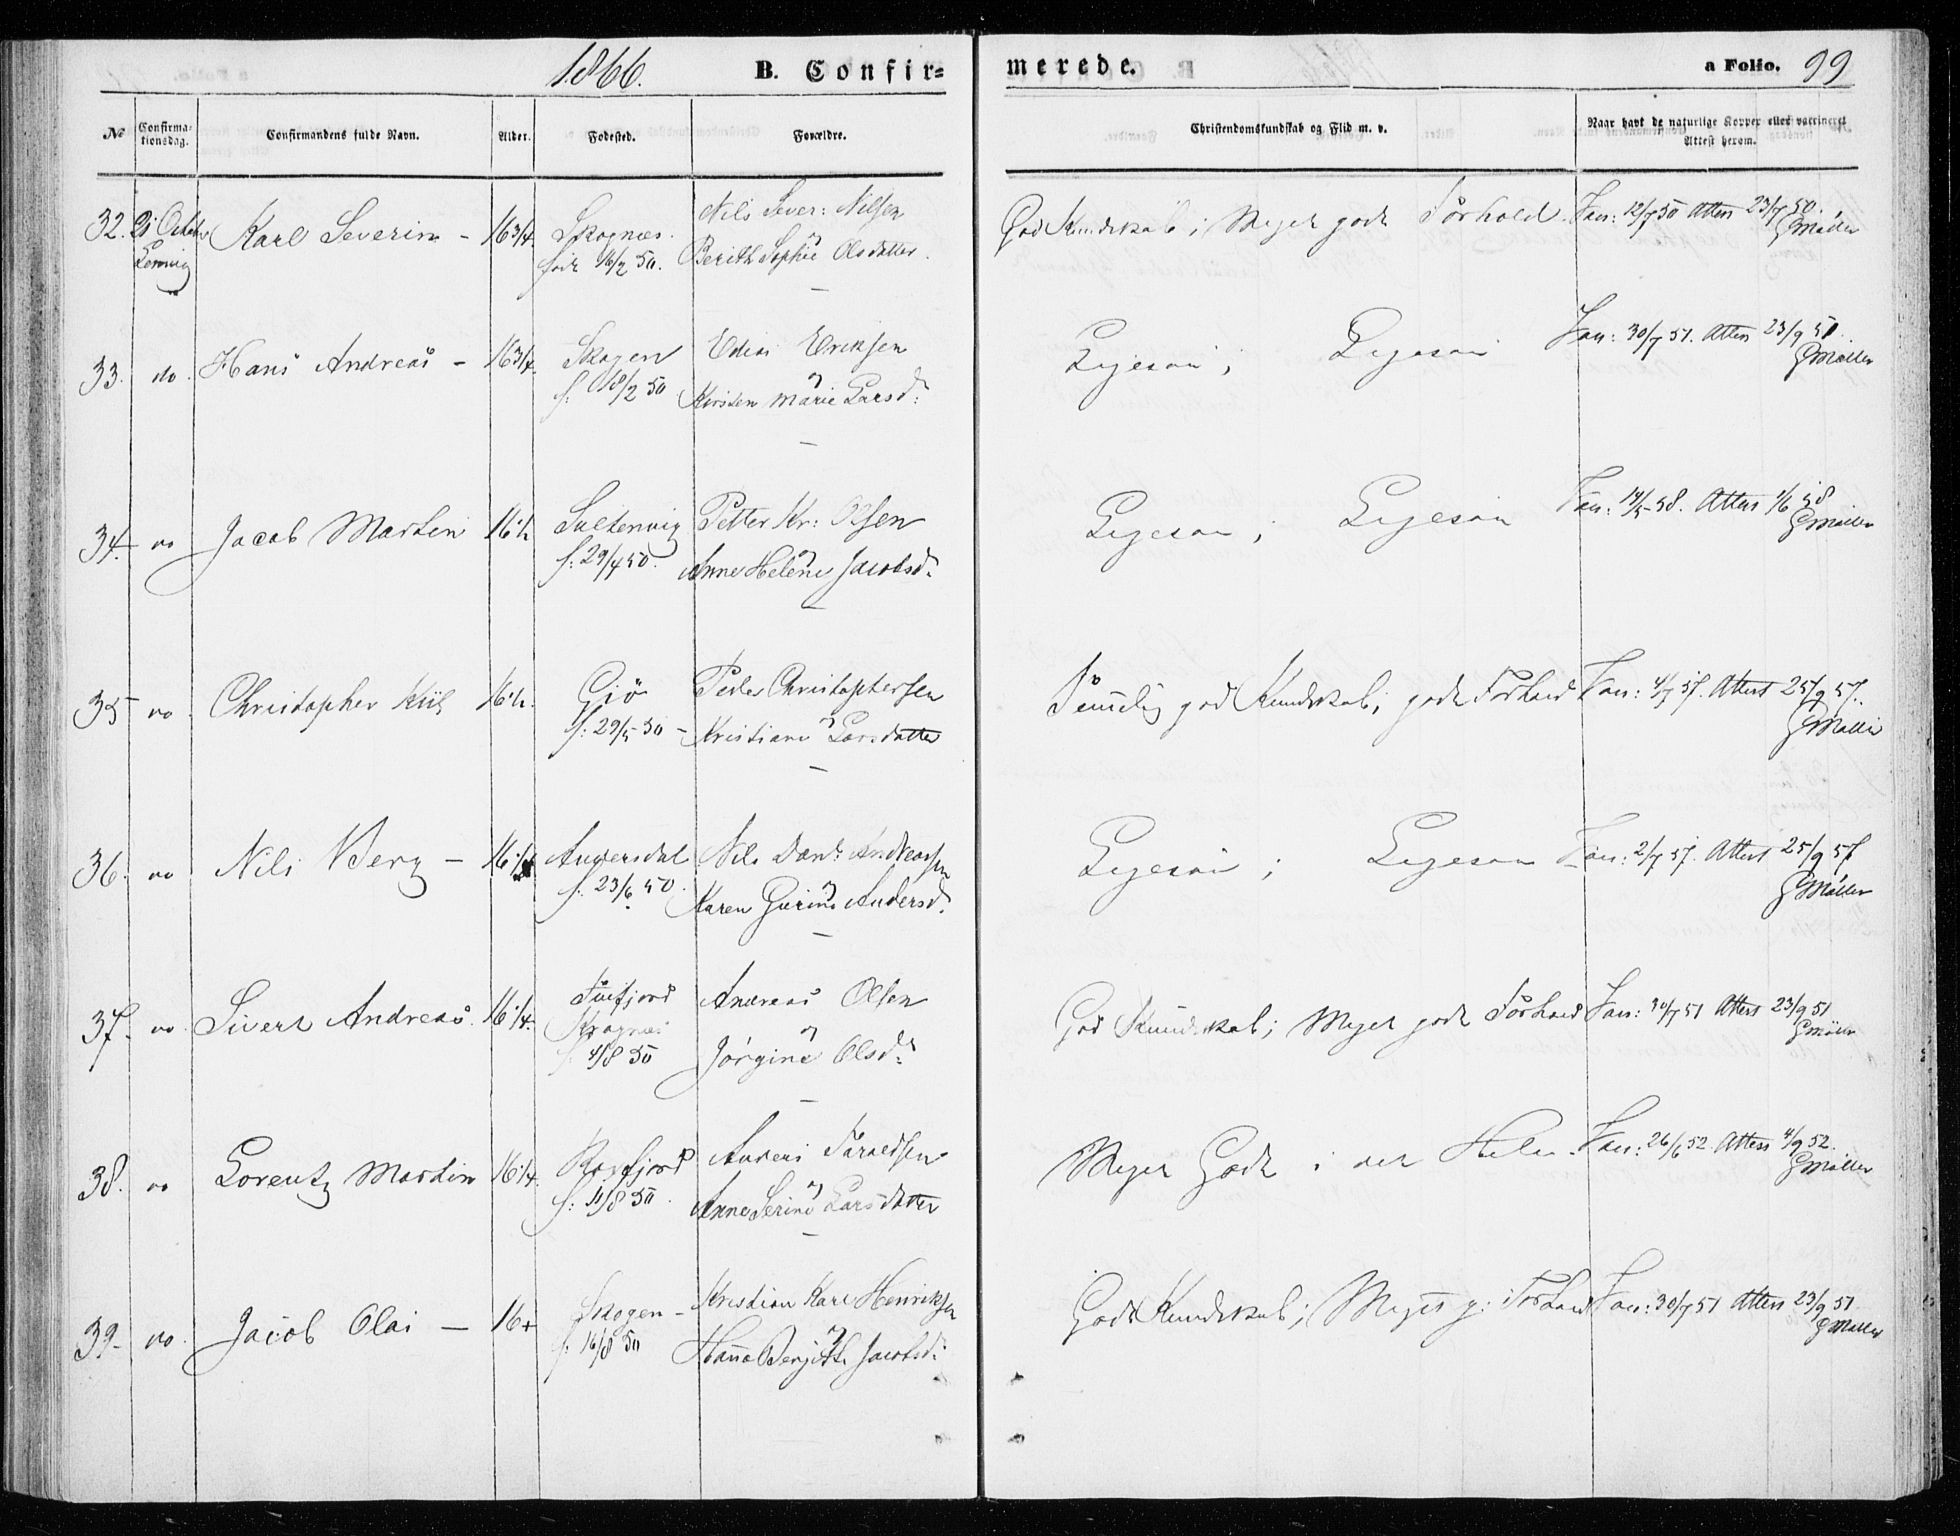 1866. B. Confir= merede. a Folio. 99
No Confirmationsdag. Confirmandens fulde Navn. Alder. Fødested. Forældre. Christendomskundskab og Flid m. v. Naar havt de naturlige Kopper eller vaccineret Attest herom.
32. 21 October Karl Severin - 16 3/4 Skognæs. Nils Sever: Nilsen God Kundskab; Meget godt Forhold. Vac: 12/7 50 Attest 23/7 50.
født 16/2 50. Berith Sophie Olsdatter. GMøller
33. do. Hans Andreas - 16 3/4. Skogen Edias Eriksen Ligesaa; Ligesaa Vac: 30/7 51. Attest 23/9 51.
f: 18/2 50 Kirsten Marie Larsd: GMøller
34. do Jacob Martin 16 1/2 Sultenvig Petter Kr: Olsen Ligesaa; Ligesaa Vac: 14/5 58. Attest 1/6 58
f: 29/4 50. Anne Helene Jacobsd: GMøller
35 do. Christopher Kiil 16 1/2. Gjø Peder Christophersen Temelig god Kundskab; godt Forhold Vac: 4/7 57. Attest 25/9 57.
f: 29/5 50 - Kristiane Larsdatter GMøller
36. do Nils Berg - 16 1/4 Andersdal Nils Dan: Andreassen Ligesaa; Ligesaa Vac: 2/7 57. Attest 25/9 57
f. 23/6 50. Karen Gurine Andersd: GMøller
37. do. Sivert Andreas. 16 1/4. Tuefjord Andreas Olsen God Kundskab; Meget godt Forhold Vac: 30/7 51 Attest 23/9 51
f: 4/8 50 Jørgine Olsd: GMøller
38. do Lorentz Martin 16 1/4. Ravfjord Anders Taraldsen Meget Godt i det Hele. Vac: 26/6 52. Attest 4/9 52.
f: 11/8 50. Anne Serine Larsdatter GMøller
39. do. Jacob Olai - 16 Skogen - Kristian Karl Henriksen God Kundskab; Meget g: Forhold Vac: 30/7 51 Attest 23/9 51.
f. 16/8 50 Hanna Bergitte Jacobsd: GMøller